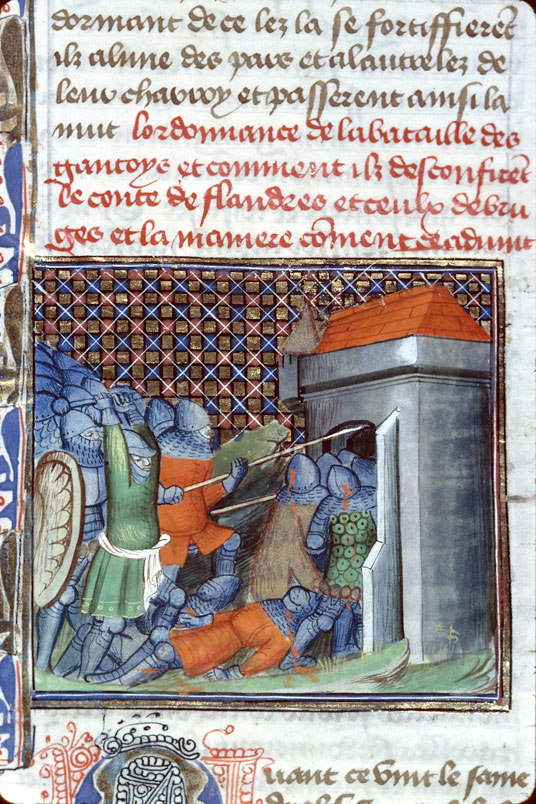 dormant de ce lez la se fortiffierēt
ilz a lune des pars et a lautre lez de
leur charroy et passerent ainsi la
nuit lordonnance de la bataille des
gantoys et comment ilz desconfirēt
le conte de flandres et ceulx de bru
ges et la maniere cōment ce aduint
uant ce vint le same